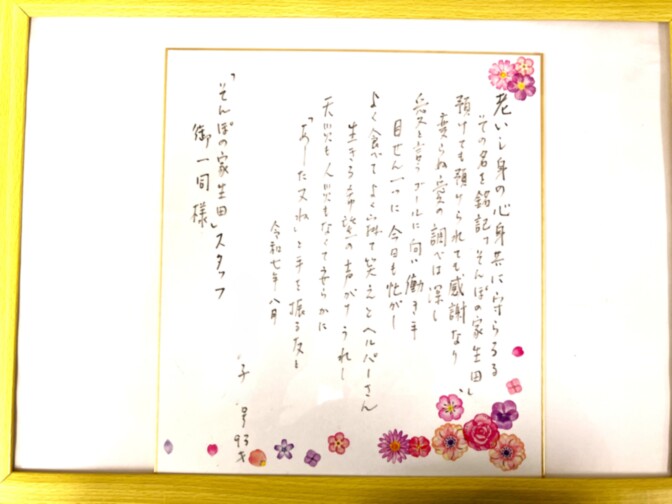 老いし身の心身共に守らるる
その名を銘記「そんぽの家生田」
預けても預けられても感謝なり
売られぬ愛の調べは深し
愛と言うゴールに向い働き手
目せん一つに今日も忙がし
よく食べてよく寝て笑えとヘルパーさん
生きる希望の声がうれし
天災も人災もなくて安らかに
「あした又ね」と手を振る友と
令和七年 八月
「そんぽの家生田」スタッフ
御一同様
子